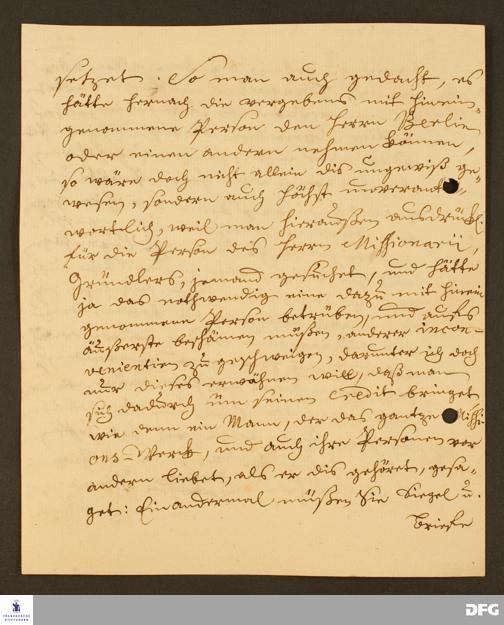 setzet. So man auch gedacht, es
hätte hernach die vergebens mit hinein-
genommene Person den Herrn Berlin
oder einen andern nehmen können,
so wäre doch nicht allein dis ungewiß ge-
wesen, sondern auch höchst unverant-
wortlich, weil man hieraußen ausdrückl.
für die Person des Herrn Missionarii,
Gründlers, jemand gesuchet, und hätte
ja das nothwendig eine dazu mit hinein
genommene Person betrüben, und aufs
äußerste beschämen müßen, anderer incon-
venientien zu geschweigen, darunter ich doch
nur dieses erwähnen will, daß man
sich dadurch um seinen Credit bringet
wie denn ein Mann, der das gantze Missi-
ons-Werck, und auch ihre Personen vor
andern liebet, als er dis gehöret, gesa-
get: Ein andermal müßen Sie Siegel u.
Briefe
FRANCKESCHE
STIFTUNGEN
DFG